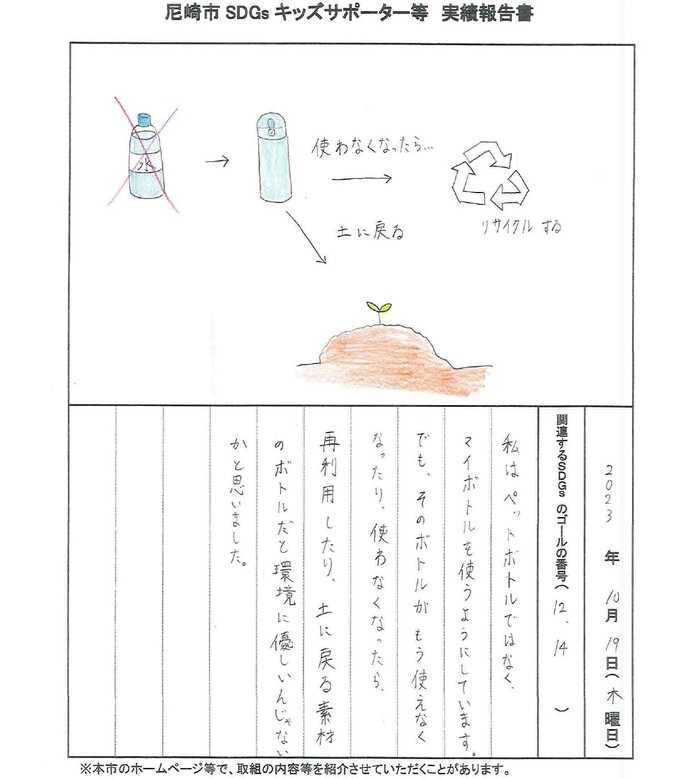 尼崎市 SDGs キッズサポーター等 実績報告書
水
使わなくなったら…
土に戻る
リサイクルする
2023年10月19日(木曜日)
関連するSDGsのゴールの番号(12、14)
私はペットボトルではなく、
マイボトルを使うようにしています。
でも、そのボトルがもう使えなく
なったり、使わなくなったら、
再利用したり、土に戻る素材
のボトルだと環境に優しいんじゃない
かと思いました。
※本市のホームページ等で、取組の内容等を紹介させていただくことがあります。